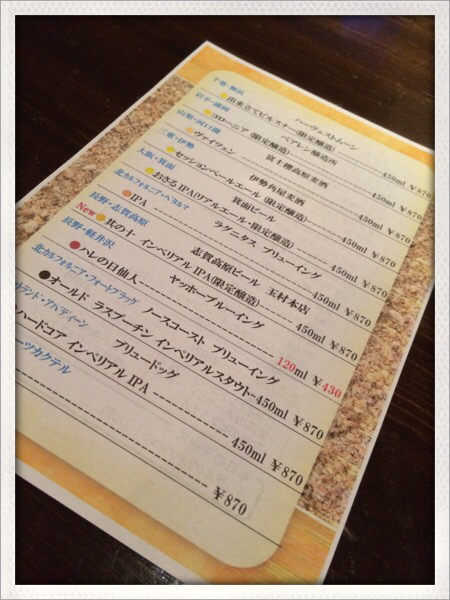 千葉・舞浜 ハーヴェストムーン
出来立てピルスナー(限定醸造) 450ml ¥870
岩手・盛岡 ベアレン醸造所
コローニア (限定醸造) 450ml ¥870
山梨・河口湖 富士桜高原麦酒
ヴァイツェン 450ml ¥870
三重・伊勢 伊勢角屋麦酒
セッションペールエール (限定醸造) 450ml ¥870
大阪・箕面 箕面ビール
おさるIPA(リアルエール・限定醸造) 450ml ¥870
北カルフォルニア・ペタルマ ラグニタス ブリューイング
IPA 450ml ¥870
長野・志賀高原 志賀高原ビール 玉村本店
New 其の十 インペリアルIPA(限定醸造) 450ml ¥870
長野・軽井沢 ヤッホーブルーイング
ハレの日仙人 120ml ¥430
北カルフォルニア・フォートブラッグ ノースコースト ブリューイング
オールド ラスプーチン インペリアルスタウト 450ml ¥870
トランド・アバディーン ブリュードッグ
ハードコア インペリアル IPA 450ml ¥870
ーツカクテル
¥870